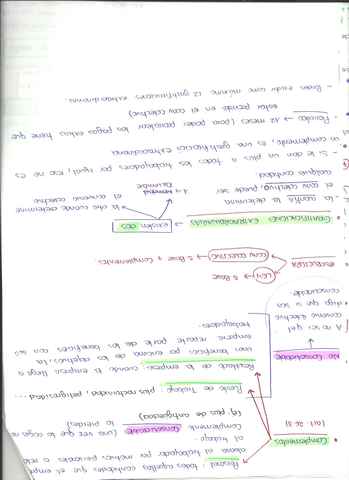 • Complementos (art. 26.3)
Personal: todas aquellas cantidades que el empre
abona al trabajador por motivos personales o rela
al trabajo.
Complemento Consolidable (una vez que lo coges no
(ej. plus de antigüedad) lo pierdes)
Puesto de Trabajo: plus nocturnidad, peligrosidad ...
Resultado de la empresa: cuando la empresa llega a
unos beneficios por encima de los objetivos, la
empresa reparte parte de los beneficios con sus
trabajadores.
No Consolidable
A no ser q el
convenio colectivo
diga q si son
consolidable.
ESTRUCTURA
LEY → S. Base
CONV. COLECTIVO → S. Base + Complementos.
GRATIFICACIONES EXTRAORDINARIAS → existen dos
1 → Diciembre
la otra cuando determine
el convenio colectivo
- La cuantía la determina
el conv. colectivo, puede ser
cualquier cantidad.
- Si le dan un plus a todos los trabajadores por igual, eso no es
un complemento, es una gratificación extraordinaria.
- Periodos → 12 meses (para poder periodicar las pagas extras tiene que
estar previsto en el conv. colectivo)
- Pueden existir como máximo 12 gratificaciones extraordinarias.